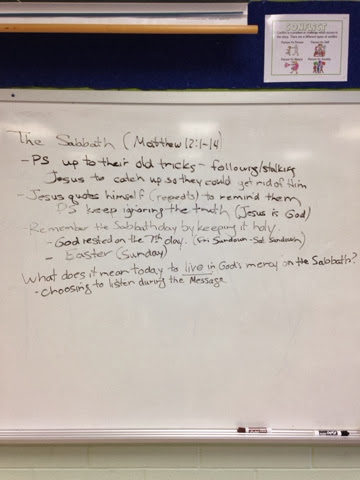 CONFLICT
The Sabbath (Matthew 12:1-14)
- PS up to their old tricks - following/stalking
Jesus to catch up so they could get rid of him
- Jesus quotes himself (repeats) to remind them
PS keep ignoring the truth (Jesus is God)
Remember the Sabbath day by keeping it holy
- God rested on the 7th day. (Fri Sundown - Sat Sundown)
- Easter (Sunday)
What does it mean today to live in God's mercy on the Sabbath?
- Choosing to listen during the Message